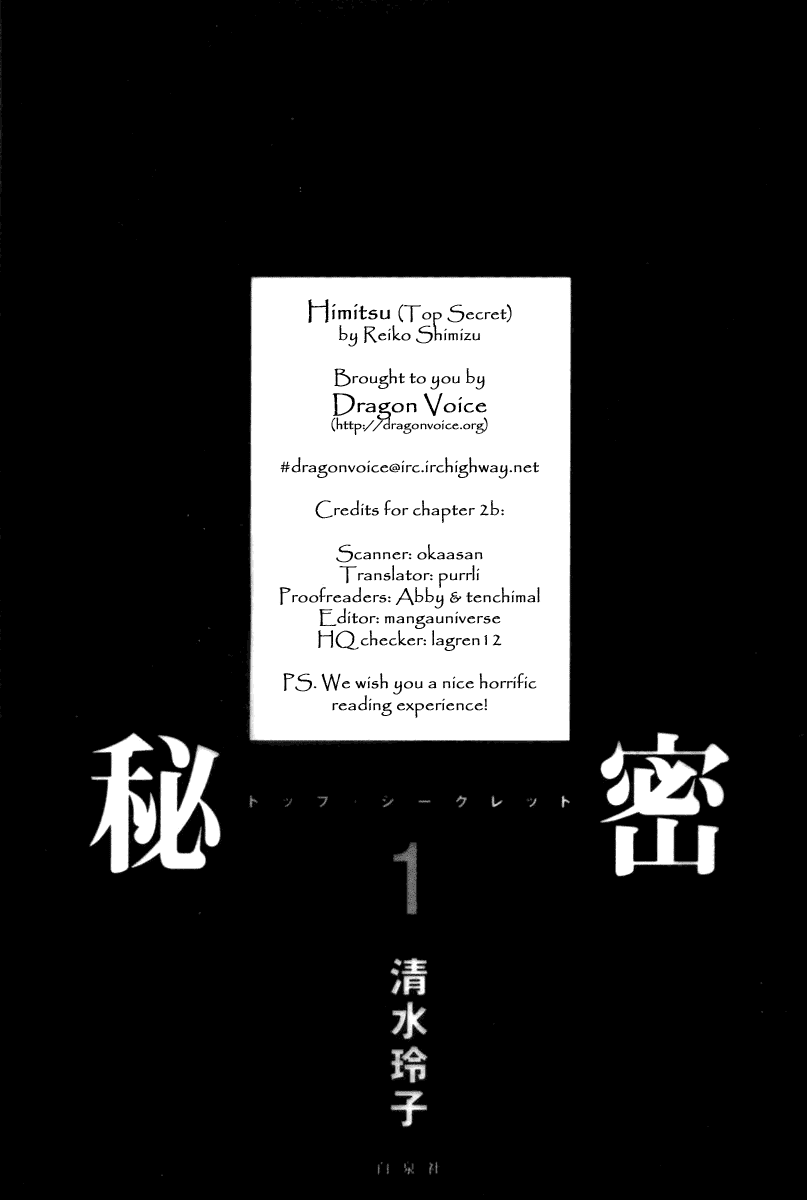 Himitsu (Top Secret)
by Reiko Shimizu
Brought to you by
Dragon Voice
(http://dragonvoice.org)
#dragonvoice@irc.irchighway.net
Credits for chapter 2b:
Scanner: okaasan
Translator: purrli
Proofreaders: Abby & tenchimal
Editor: mangauniverse
HQ checker: lagren12
PS. We wish you a nice horrific
reading experience!
秘密
トップ・シークレット
1
清水玲子
白泉社